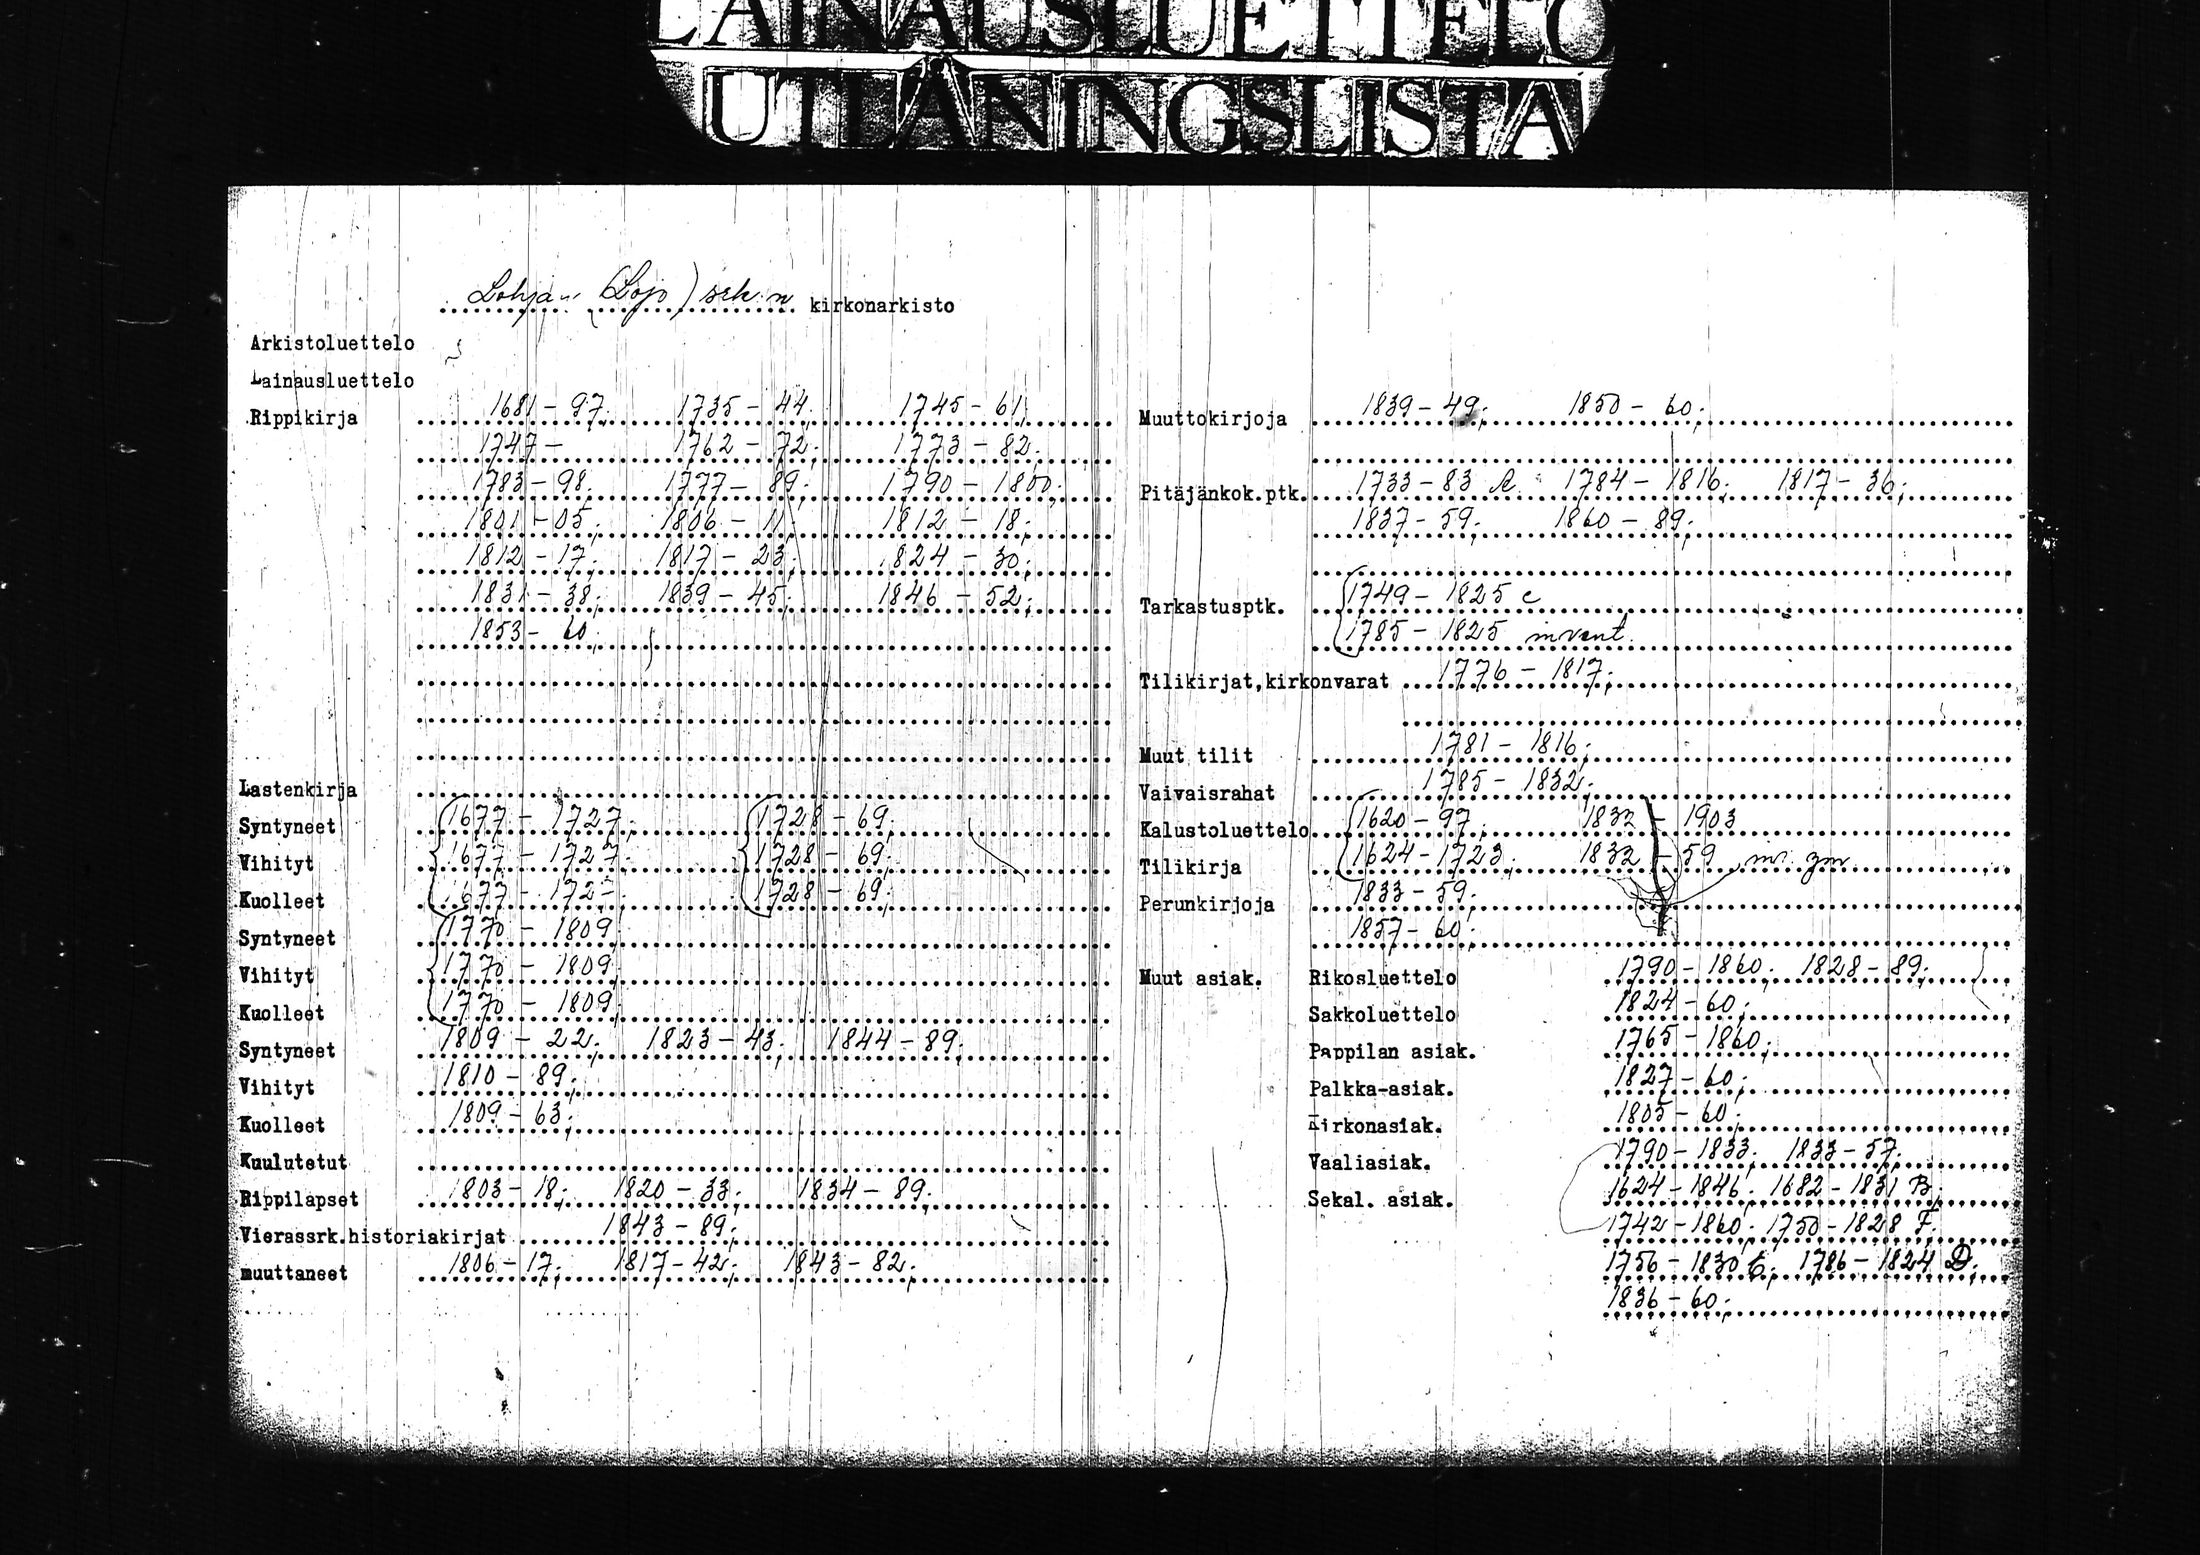 LAINAUSLUETTELO
UTLÅNINGSLISTA
Lohjan (Lojo) srk:n kirkonarkisto
Arkistoluettelo
Lainausluettelo
Rippikirja 1681-97. 1735-44. 1745-61.
1747- 1762-72; 1773-82.
1783-98. 1777-89; 1790-1800;
1801-05; 1806-11; 1812-18;
1812-17; 1817-23; 1824-30;
1831-38; 1839-45; 1846-52;
1853-60.
Lastenkirja
Syntyneet 1677-1727; 1728-69;
Vihityt 1677-1727; 1728-69;
Kuolleet 1677-1727; 1728-69;
Syntyneet 1770-1809
Vihityt 1770-1809
Kuolleet 1770-1809
Syntyneet 1809-22; 1823-43; 1844-89;
Vihityt 1810-89;
Kuolleet 1809-63;
Kuulutetut
Rippilapset 1803-18; 1820-33; 1834-89.
Vierassrk.historiakirjat 1843-89;
muuttaneet 1806-17; 1817-42; 1843-82;
Muuttokirjoja 1839-49; 1850-60;
Pitäjänkok.ptk. 1733-83 A 1784-1816; 1817-36;
1837-59; 1860-89;
Tarkastusptk. 1749-1825 c
1785-1825 invent.
Tilikirjat,kirkonvarat 1776-1817;
Muut tilit 1781-1816;
Vaivaisrahat 1785-1832;
Kalustoluettelo 1620-97; 1832-1903
Tilikirja 1624-1723; 1832-59
Perunkirjoja 1833-59;
1857-60;
Muut asiak. Rikosluettelo 1790-1860; 1828-89;
Sakkoluettelo 1824-60;
Pappilan asiak. 1765-1860;
Palkka-asiak. 1827-60;
Kirkonasiak. 1805-60;
Vaaliasiak. 1790-1833; 1833-57.
Sekal. asiak. 1624-1846; 1682-1831 B;
1742-1860; 1750-1828 F.
1756-1830 E; 1786-1824 D.
1836-60;